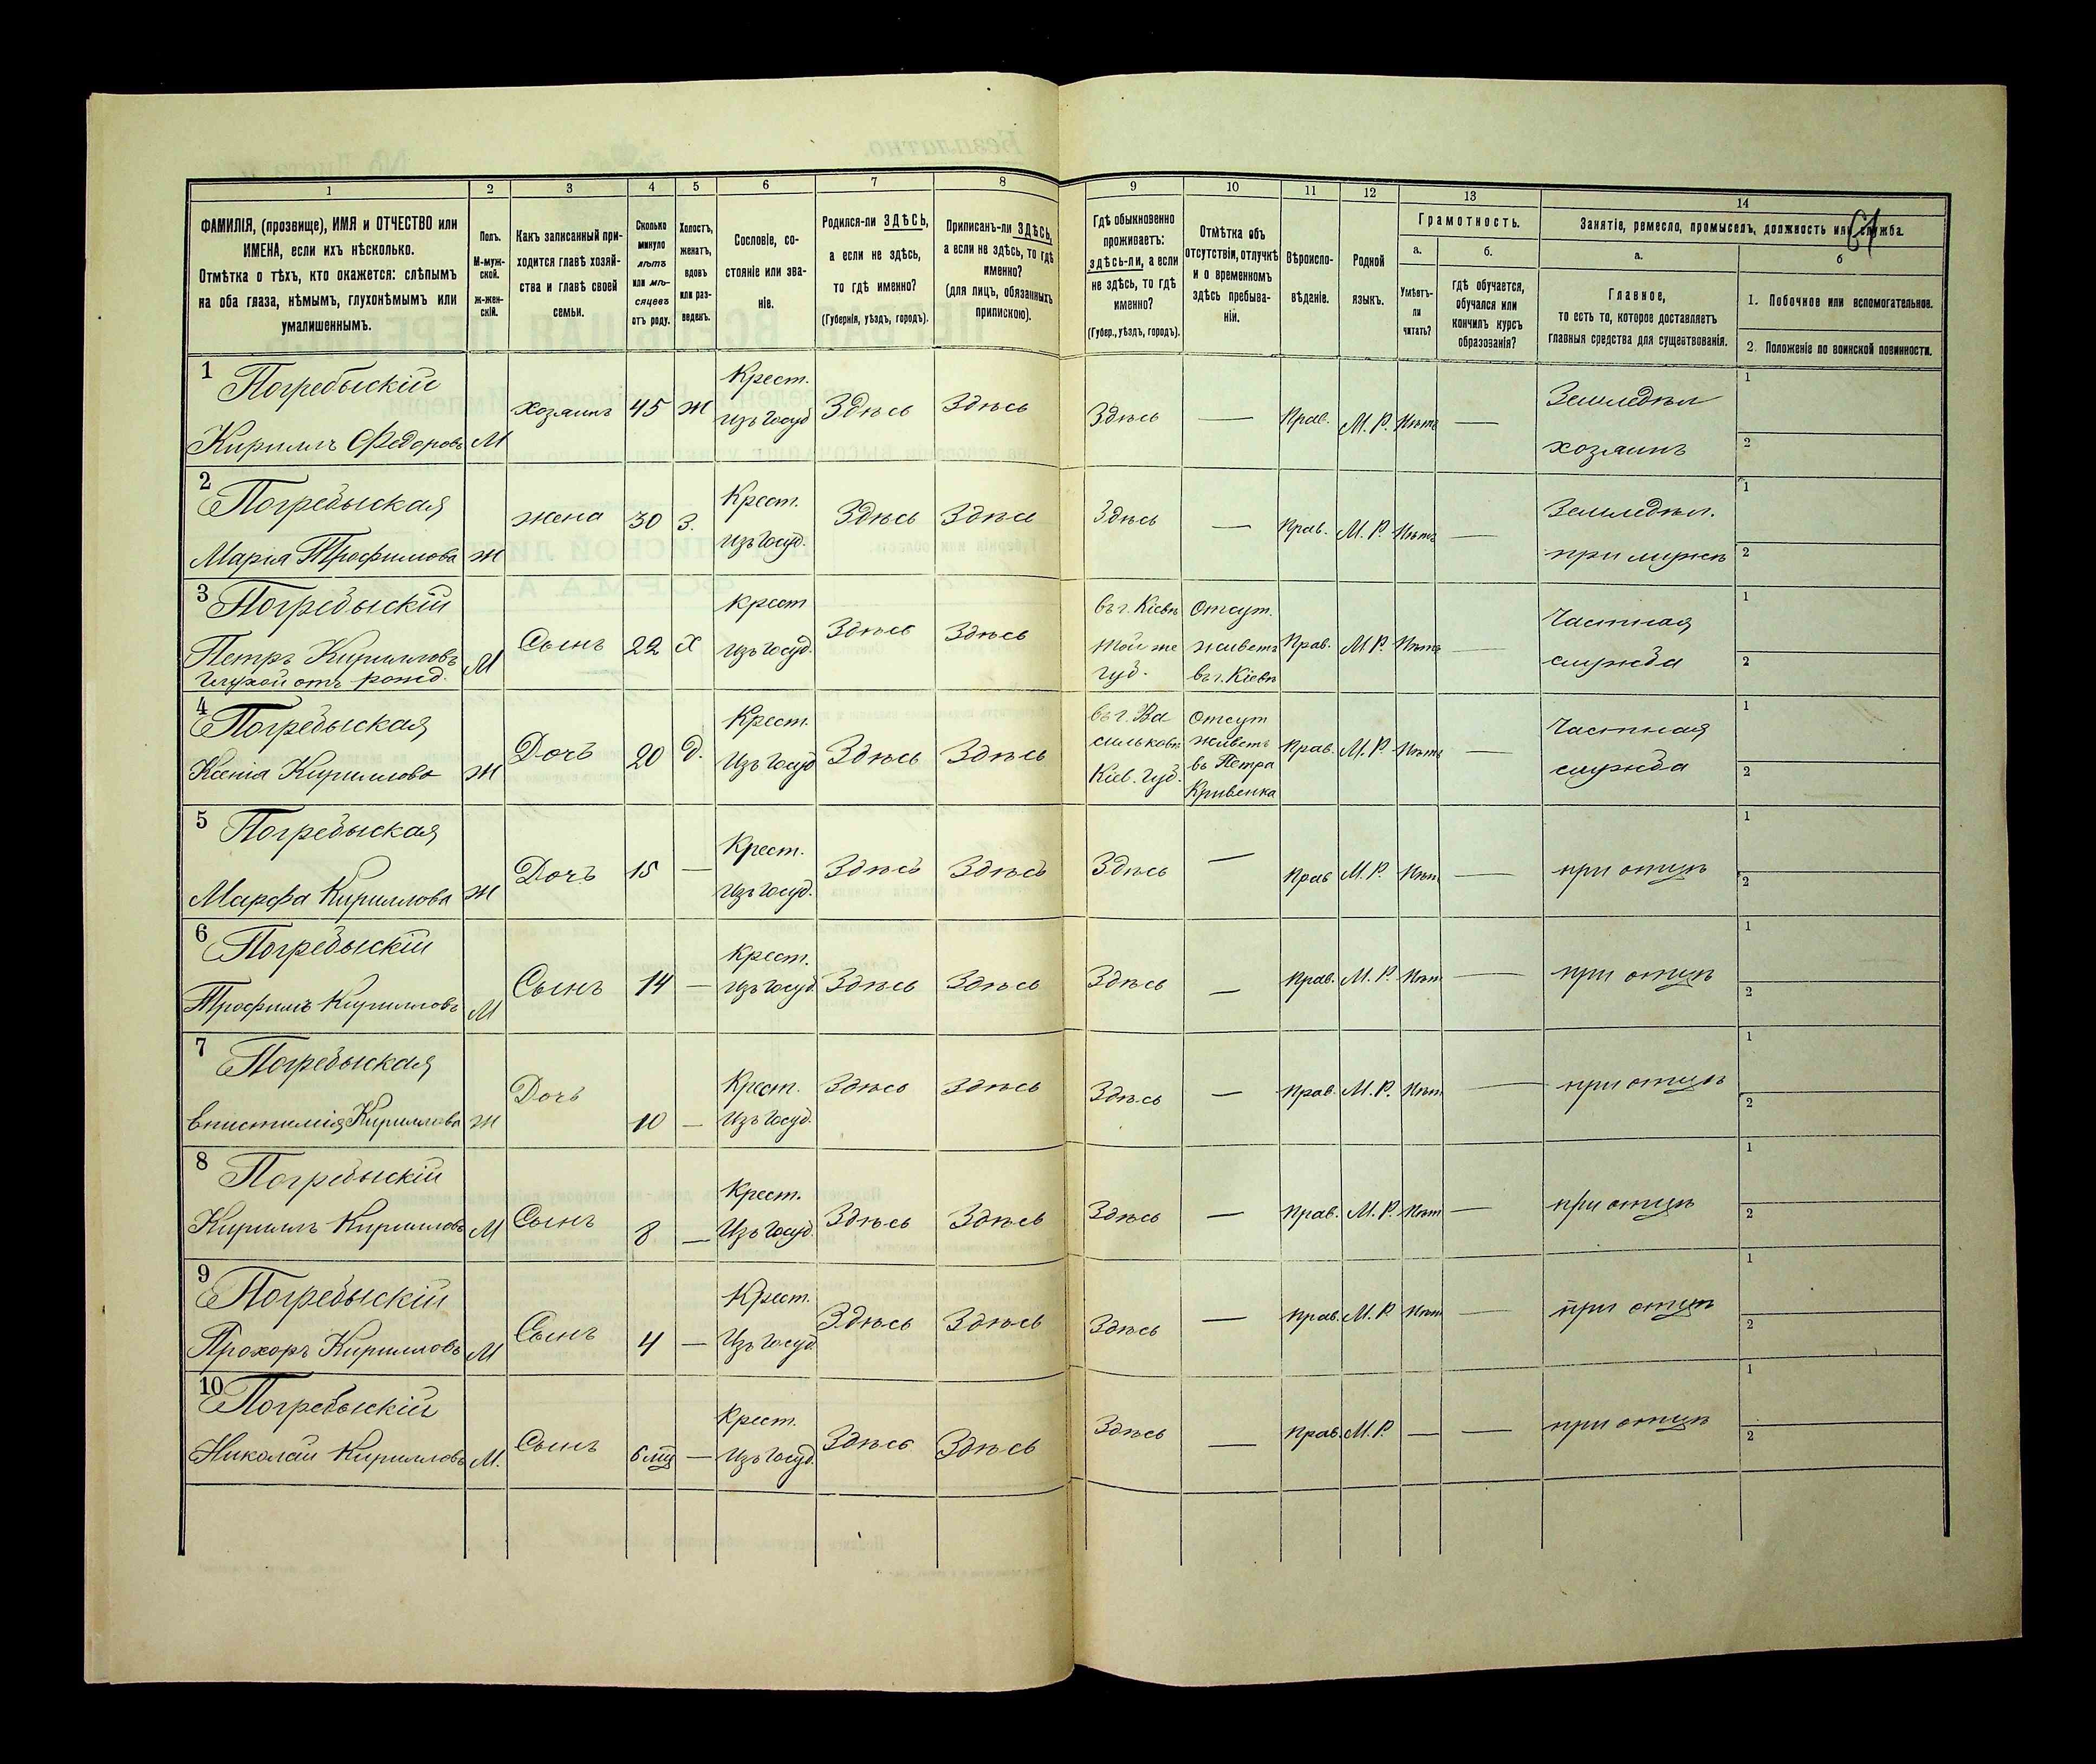 61
1 2 3 4 5 6 7 8 9 10 11 12 13 14
ФАМИЛІЯ, (прозвище), ИМЯ и ОТЧЕСТВО или
ИМЕНА, если ихъ нѣсколько.
Отмѣтка о тѣхъ, кто окажется: слѣпымъ
на оба глаза, нѣмымъ, глухонѣмымъ или
умалишеннымъ.
Полъ.
М-муж-
ской.
ж-жен-
скій.
Какъ записанный при-
ходится главѣ хозяй-
ства и главѣ своей
семьи.
Сколько
минуло
лѣтъ
или мѣ-
сяцевъ
отъ роду.
Холостъ,
женатъ,
вдовъ
или раз-
веденъ.
Сословіе, со-
стояніе или зва-
ніе.
Родился-ли ЗДѢСЬ,
а если не здѣсь,
то гдѣ именно?
(Губернія, уѣздъ, городъ).
Приписанъ-ли ЗДѢСЬ,
а если не здѣсь, то гдѣ
именно?
(для лицъ, обязанныхъ
припискою).
Гдѣ обыкновенно
проживаетъ:
здѣсь-ли, а если
не здѣсь, то гдѣ
именно?
(Губер., уѣздъ, городъ).
Отмѣтка объ
отсутствіи, отлучкѣ
и о временномъ
здѣсь пребыва-
ніи.
Вѣроиспо-
вѣданіе.
Родной
языкъ.
Грамотность.
а.
Умѣетъ-
ли
читать?
б.
гдѣ обучается,
обучался или
кончилъ курсъ
образованія?
Занятіе, ремесло, промыселъ, должность или служба.
а.
Главное,
то есть то, которое доставляетъ
главныя средства для существованія.
б
1. Побочное или вспомогательное.
2. Положеніе по воинской повинности.
1 Погребыскій
Кириллъ Федоровъ М хозяинъ 45 ж Крест.
изъ госуд Здѣсь Здѣсь Здѣсь — Прав. М. Р. Нѣтъ — Земледѣл
хозяинъ
1
2
2 Погребыская
Марія Трофимова ж жена 30 З. Крест.
Изъ госуд. Здѣсь Здѣсь Здѣсь — Прав. М. Р. Нѣтъ — Земледѣл.
при мужѣ
1
2
3 Погребыскій
Петръ Кирилловъ
Глухой отъ рожд. М Сынъ 22 Х Крест
Изъ госуд. Здѣсь Здѣсь въ г. Кіевѣ
той же
губ. Отсут.
живетъ
въ г. Кіевѣ Прав. М. Р. Нѣтъ — Частная
служба
1
2
4 Погребыская
Ксенія Кириллова ж Дочь 20 д. Крест.
Изъ госуд Здѣсь Здѣсь въ г. Ва
сильковѣ
Кіев. губ. Отсут
живетъ
въ Петра
Кривенка Прав. М. Р. Нѣтъ — Частная
служба
1
2
5 Погребыская
Марфа Кириллова ж Дочь 15 — Крест.
Изъ госуд. Здѣсь Здѣсь Здѣсь — Прав М. Р. Нѣт — при отцѣ
1
2
6 Погребыскій
Трофимъ Кирилловъ М Сынъ 14 — Крест.
Изъ госуд. Здѣсь Здѣсь Здѣсь — Прав. М. Р. Нѣт — при отцѣ
1
2
7 Погребыская
Епистимія Кириллова ж Дочь 10 — Крест.
Изъ госуд. Здѣсь Здѣсь Здѣсь — Прав. М. Р. Нѣт — при отцѣ
1
2
8 Погребыскій
Кириллъ Кирилловъ М Сынъ 8 — Крест.
Изъ госуд. Здѣсь Здѣсь Здѣсь — Прав. М. Р. Нѣт — при отцѣ
1
2
9 Погребыскій
Прохоръ Кирилловъ М Сынъ 4 — Крест.
Изъ госуд. Здѣсь Здѣсь Здѣсь — Прав. М. Р. Нѣт — при отцѣ
1
2
10 Погребыскій
Николай Кирилловъ М. Сынъ 6 мц — Крест.
Изъ госуд. Здѣсь Здѣсь Здѣсь — Прав. М. Р. — — при отцѣ
1
2